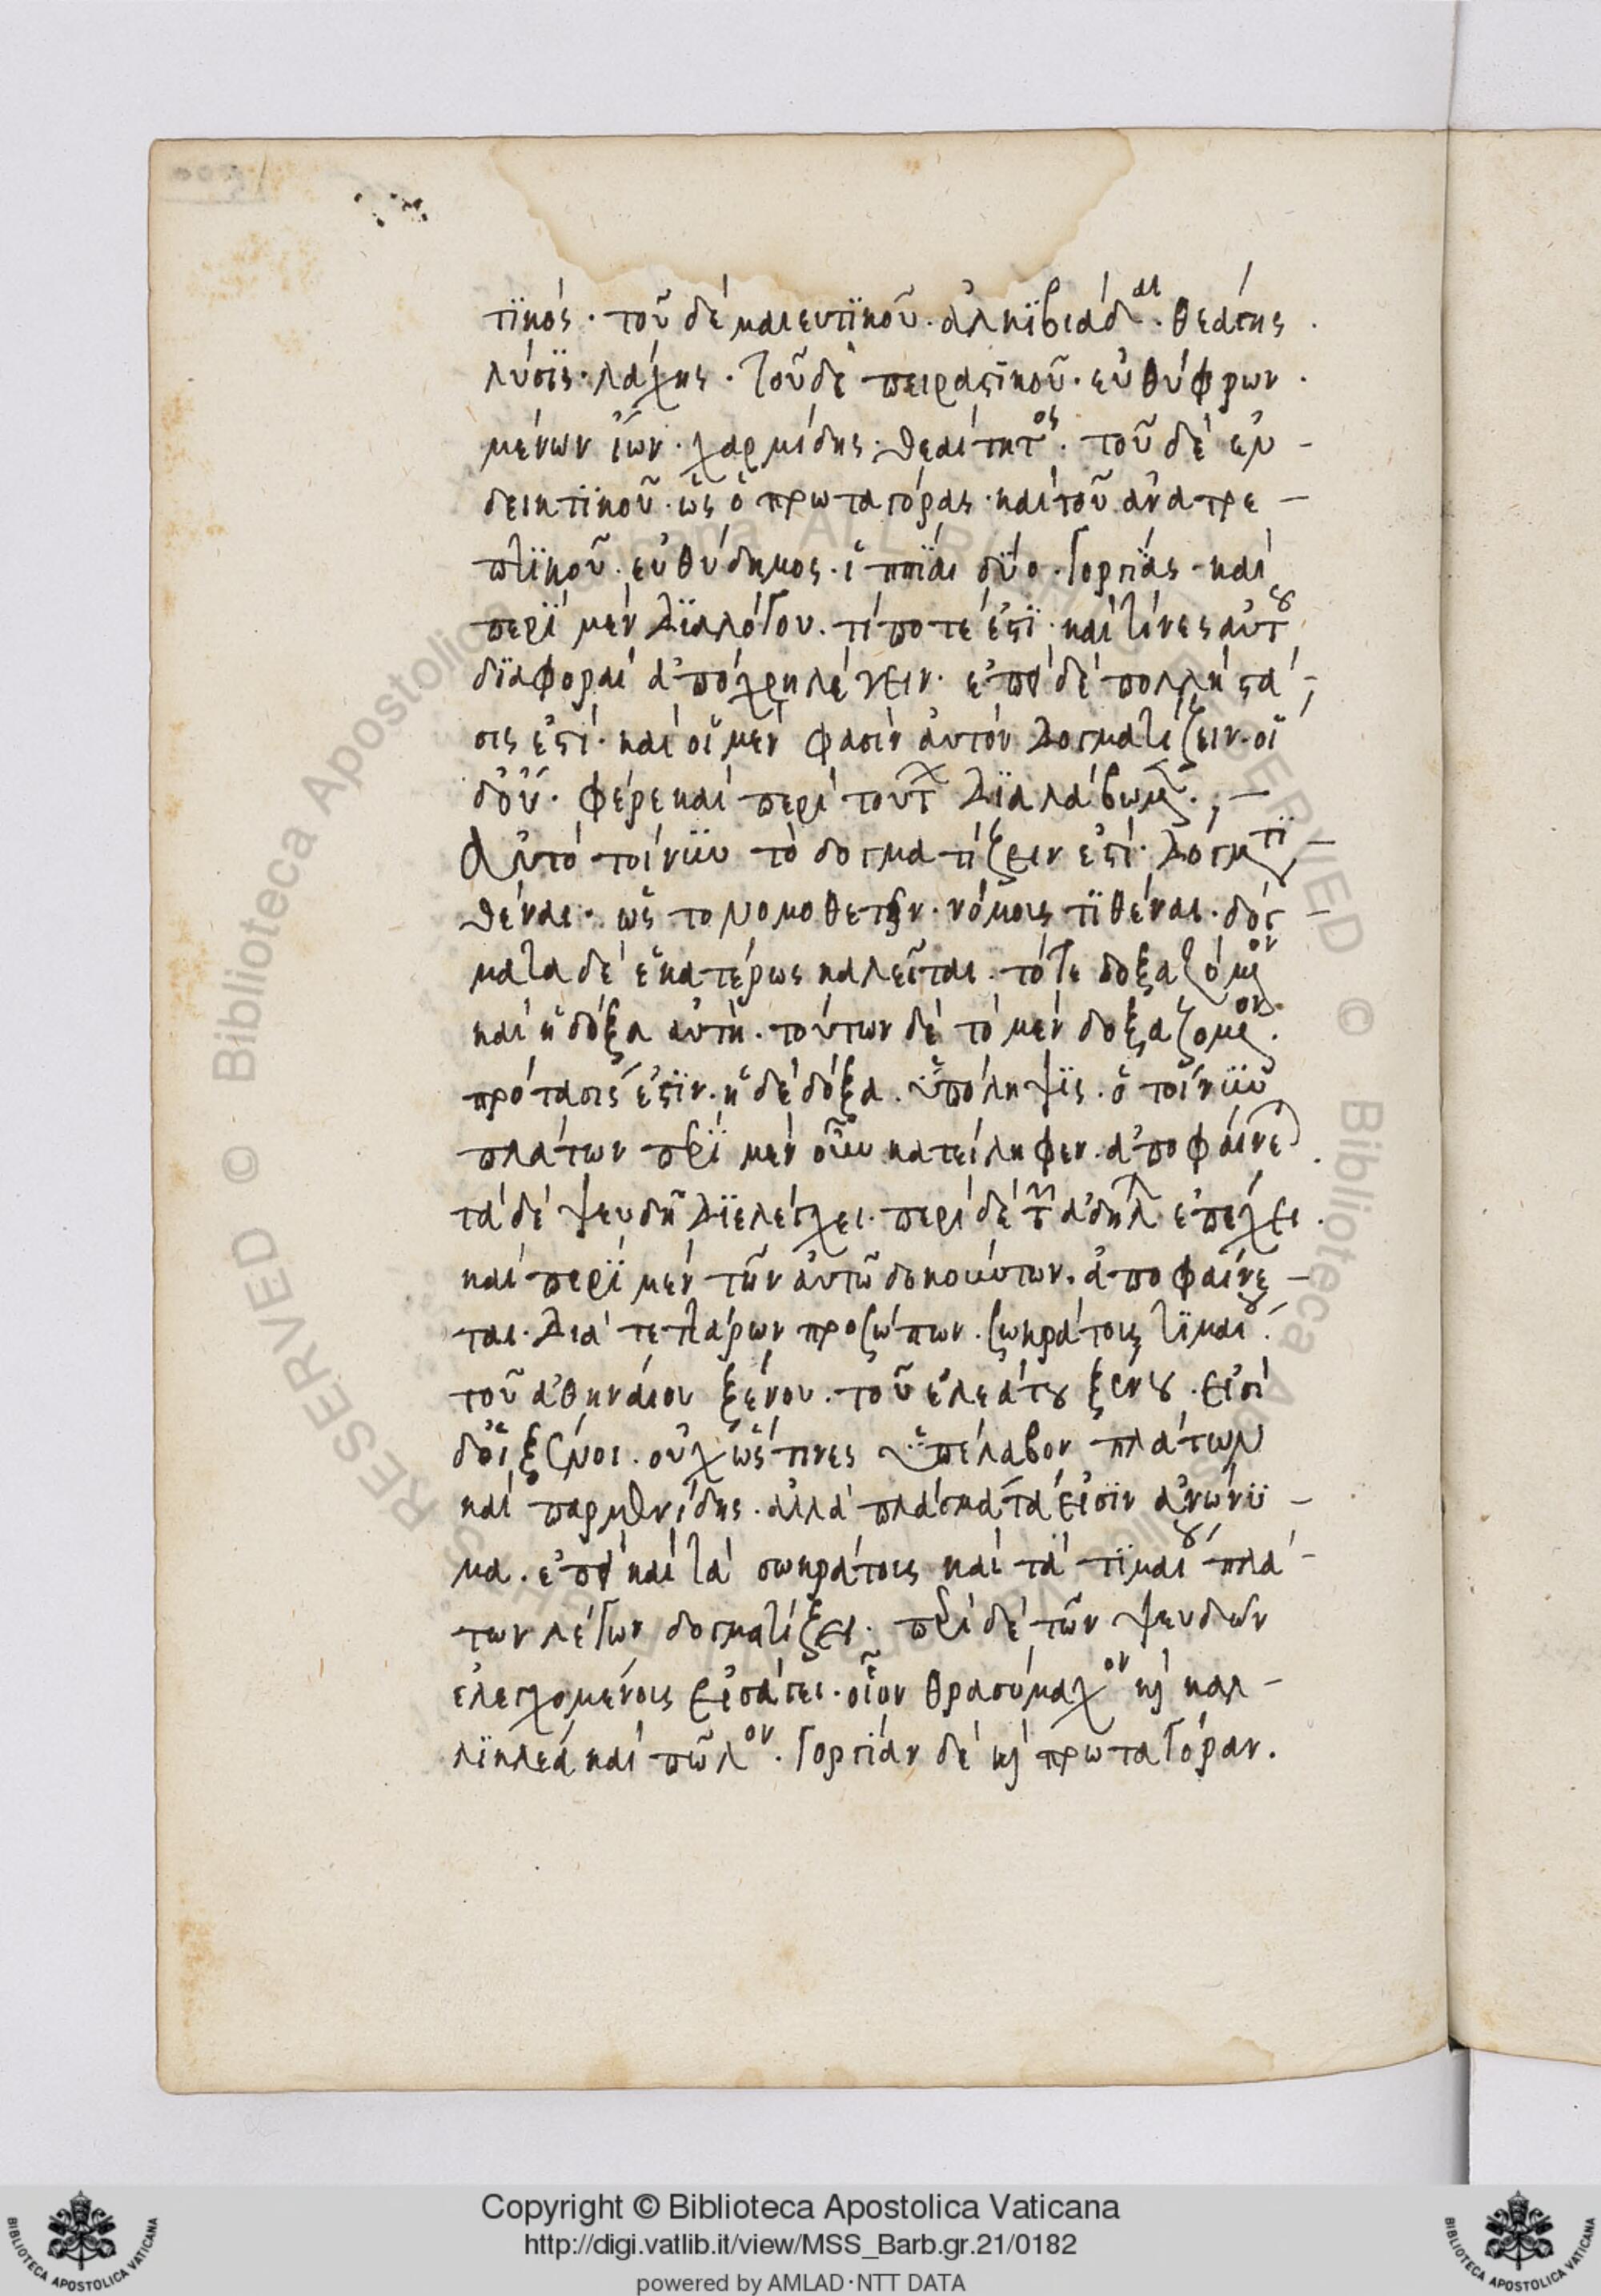 τϊκός · τοῦ δέ μαιευτϊκοῦ · ἀλκϊβιάδαι · θεάγης ·
λύσϊς · λάχης · τοῦ δὲ πειραστϊκοῦ · εὐθύφρων ·
μένων ἴων · χαρμίδης · θεαίτητος · τοῦ δὲ ἐν -
δεικτϊκοῦ · ὡς ὁ πρωταγόρας · καὶ τοῦ ἀνατρε -
πτϊκοῦ · εὐθύδημος · ἱππϊαι δύο · Γοργϊας · καὶ
περϊ μὲν διαλόγου · τί ποτέ ἐστϊ · καὶ τίνες αὐτου
δϊαφοραί ἀπόχρη λέγειν · ἐπεὶ δὲ πολλή στά -
σις ἐστί · καὶ οἱ μέν φασιν ἀυτόν δογματίζειν · οἱ
δ' οὔ · φέρε καὶ περὶ τούτου διαλάβωμεν · , -
Αὐτό τοίνϋν τὸ δογματίζειν ἐστί · δόγματϊ -
θέναι · ὡς το νομοθετεῖν · νόμοις τϊθέναι · δόγ -
ματα δὲ ἑκατέρως καλεῖται · τό τε δοξαζόμενον
καὶ ἡ δόξα αὐτή · τούτων δὲ τὸ μὲν δοξαζόμενον ·
πρότασίς ἐστϊν · ἡ δὲ δόξα · ὑπόληψϊς · ὁ τοίνϋν
πλάτων περϊ μὲν ὧν κατείληφεν · ἀποφάινεται ·
τὰ δὲ ψευδῆ διελέγχει · περὶ δὲ τῶν ἀδήλων ἐπέχει ·
καὶ περϊ μὲν τῶν ἀυτῶ δοκούντων · ἀποφαίνε -
ται · διὰ τεττάρων προσώπων · σωκράτους τϊμαίου ·
τοῦ ἀθηνάιου ξένου · τοῦ ἐλεάτου ξένου · εἰσὶ
δ' οἱ ξένοι · οὐχ ὥς τινες ὑπέλαβον πλάτων
καὶ παρμενίδης · ἀλλὰ πλάσματά εἰσϊν ἀνώνϋ -
μα · ἐπεὶ καὶ τὰ σωκράτους καὶ τὰ τϊμαίου πλά -
των λέγων δογματίζει · περὶ δὲ τῶν ψευδῶν
ἐλεγχομένους εἰσάγει · οἷον θρασύμαχον καὶ καλ -
λϊκλεά καὶ πῶλον · Γοργϊάν δὲ καὶ πρωταγόραν ·
Copyright © Biblioteca Apostolica Vaticana
http://digi.vatlib.it/view/MSS_Barb.gr.21/0182
powered by AMLAD·NTT DATA